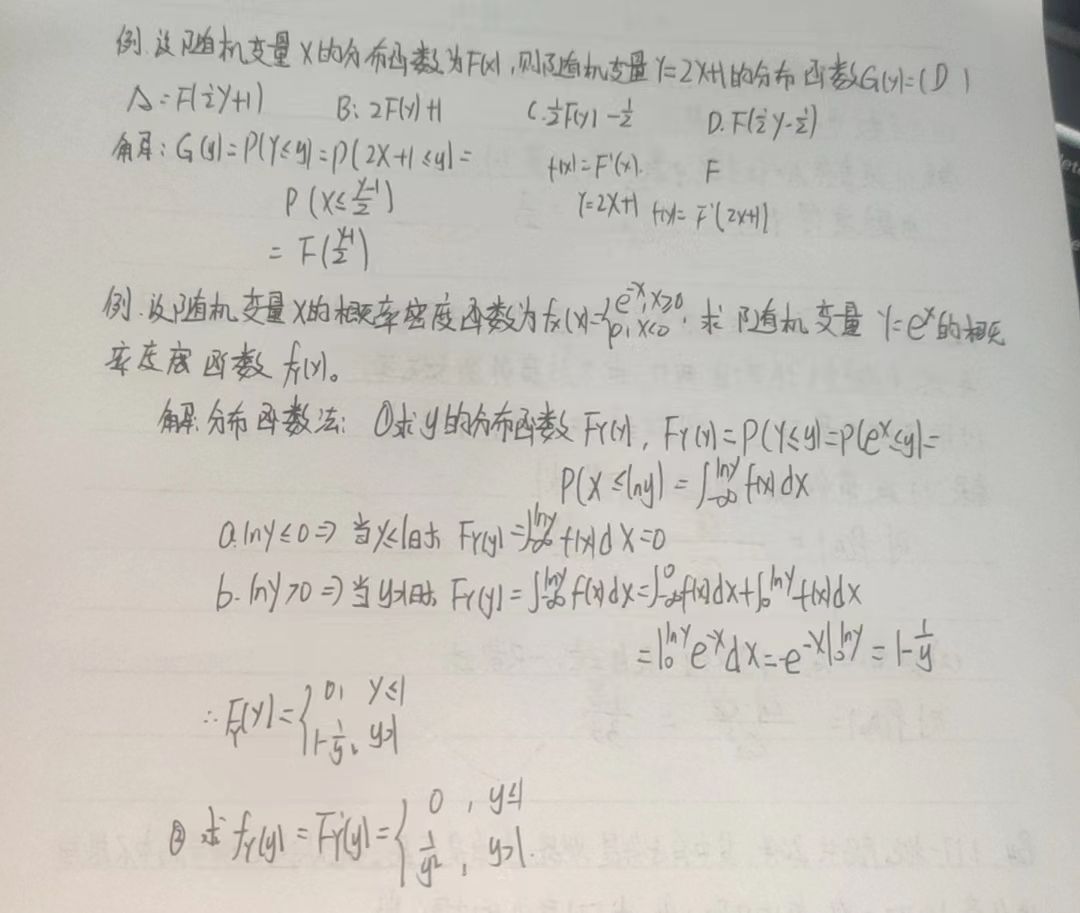 例.设随机变量X的分布函数为F(x),则随机变量Y=2X+1的分布函数G(y)=(D)
A=F(½y+1) B:2F(y)+1 C.½F(y)-½ D.F(½y-½)
解:G(y)=P(Y≤y)=P(2X+1≤y)= f(x)=F'(x). F
P(X≤\frac{y-1}{2}) Y=2X+1 f(x)=F'(2x+1)
=F(\frac{y-1}{2})
例.设随机变量X的概率密度函数为f_X(x)={e^{-x},x≥0; 0,x<0,求随机变量Y=e^x的概
率度度函数f_Y(y)。
解:分布函数法:①求y的分布函数F_Y(y),F_Y(y)=P(Y≤y)=P(e^x≤y)=
P(X≤lny)=∫_{-∞}^{lny}f(x)dx
a.lny≤0⇒当y≤1时 F_Y(y)=∫_{-∞}^{lny}f(x)dx=0
b.lny>0⇒当y>1时 F_Y(y)=∫_{-∞}^{lny}f(x)dx=∫_{-∞}^{0}f(x)dx+∫_0^{lny}f(x)dx
=∫_0^{lny}e^{-x}dx=-e^{-x}|_0^{lny}=1-\frac{1}{y}
∴F_Y(y)={0, y≤1; 1-\frac{1}{y}, y>1
②求f_Y(y)=F_Y'(y)={0, y≤1; \frac{1}{y²}, y>1.